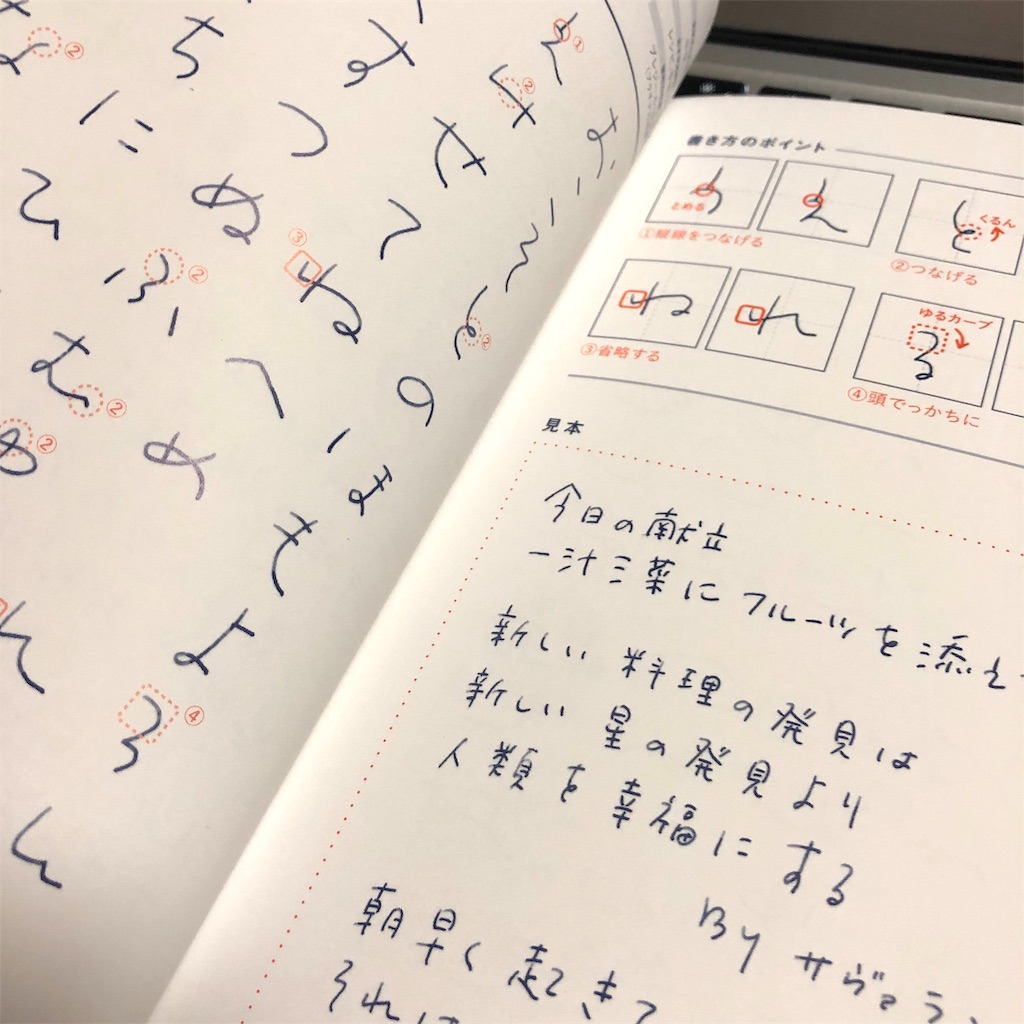 え お
け こ
す せ そ
ち つ て と
に ぬ ね の
ひ ふ へ ほ
む め も
ゆ よ
れ ろ
ん
書き方のポイント
う え と
とめる
くるん
①縦線をつなげる
②つなげる
ね れ る
ゆるカーブ
③省略する
④頭でっかちに
見本
今日の献立
一汁三菜にフルーツを添え
新しい 料理の発見は
新しい 星の発見より
人類を幸福にする
BY サヴァラン
朝早く起きて
それは